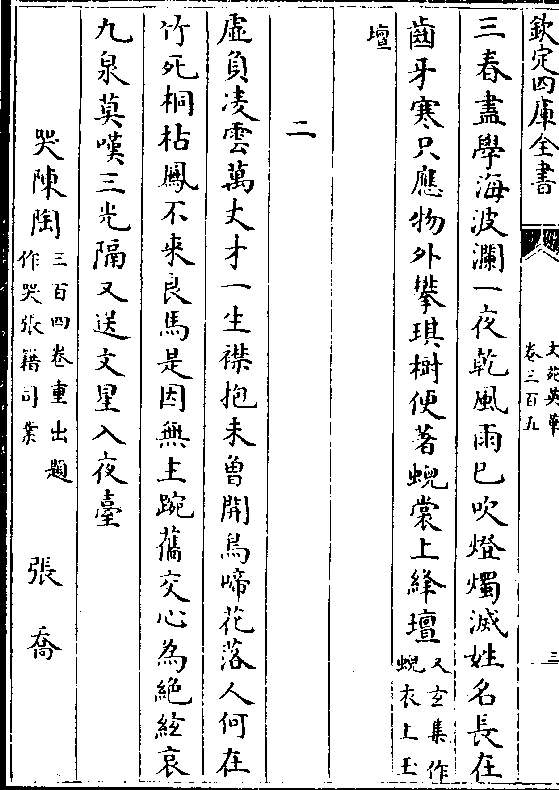 欽定四庫全書
文苑英華
卷三百五
三
三春盡學海波瀾一夜乾風雨已吹燈燭滅姓名長在
齒牙寒只應物外攀琪樹便著蜺裳上絳壇又玄集作
蜺衣上玉
壇
二
虚負凌雲萬丈才一生襟抱未曽開鳥啼花落人何在
竹死桐枯鳳不来良馬是因無主踠舊交心為絶絃哀
九泉莫嘆三光隔又送文星入夜臺
哭陳陶三百四卷重出題
作哭張籍司業
張喬